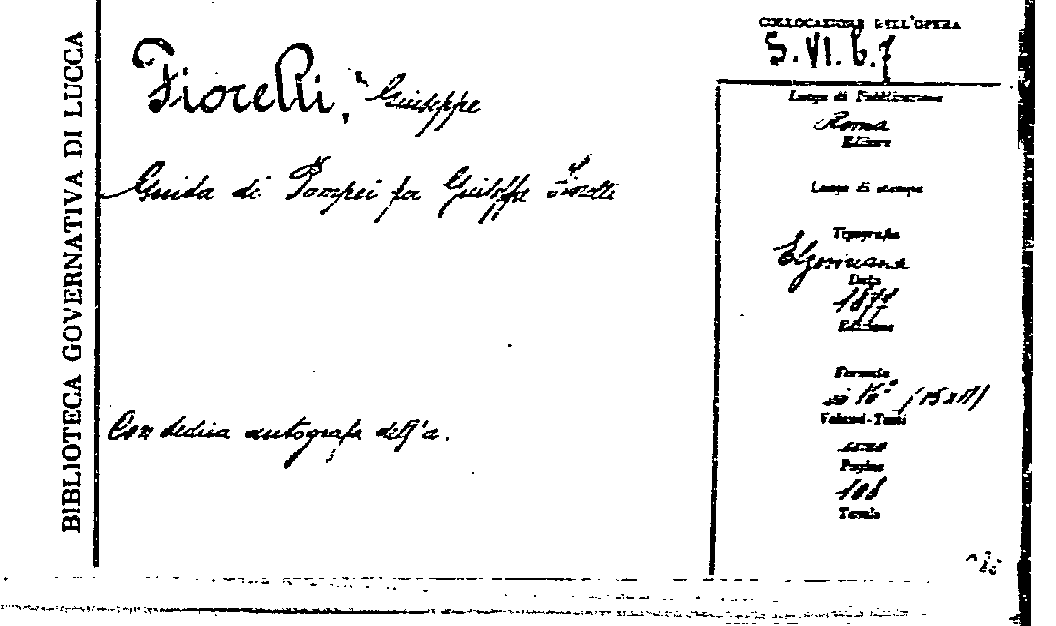 BIBLIOTECA GOVERNATIVA DI LUCCA
COLLOCAZIONE DELL'OPERA
S.VI.6.7
Fiorelli, Giuseppe
Luogo di Pubblicazione
Roma
Editore
Guida di Pompei per Giuseppe Fiorelli
Luogo di stampa
Tipografia
Elzeviriana
Data
1877
Edizione
Formato
in 16° (15x11)
Volumi-Tomi
uno
Pagine
108
Tavole
Con dedica autografa dell'a.